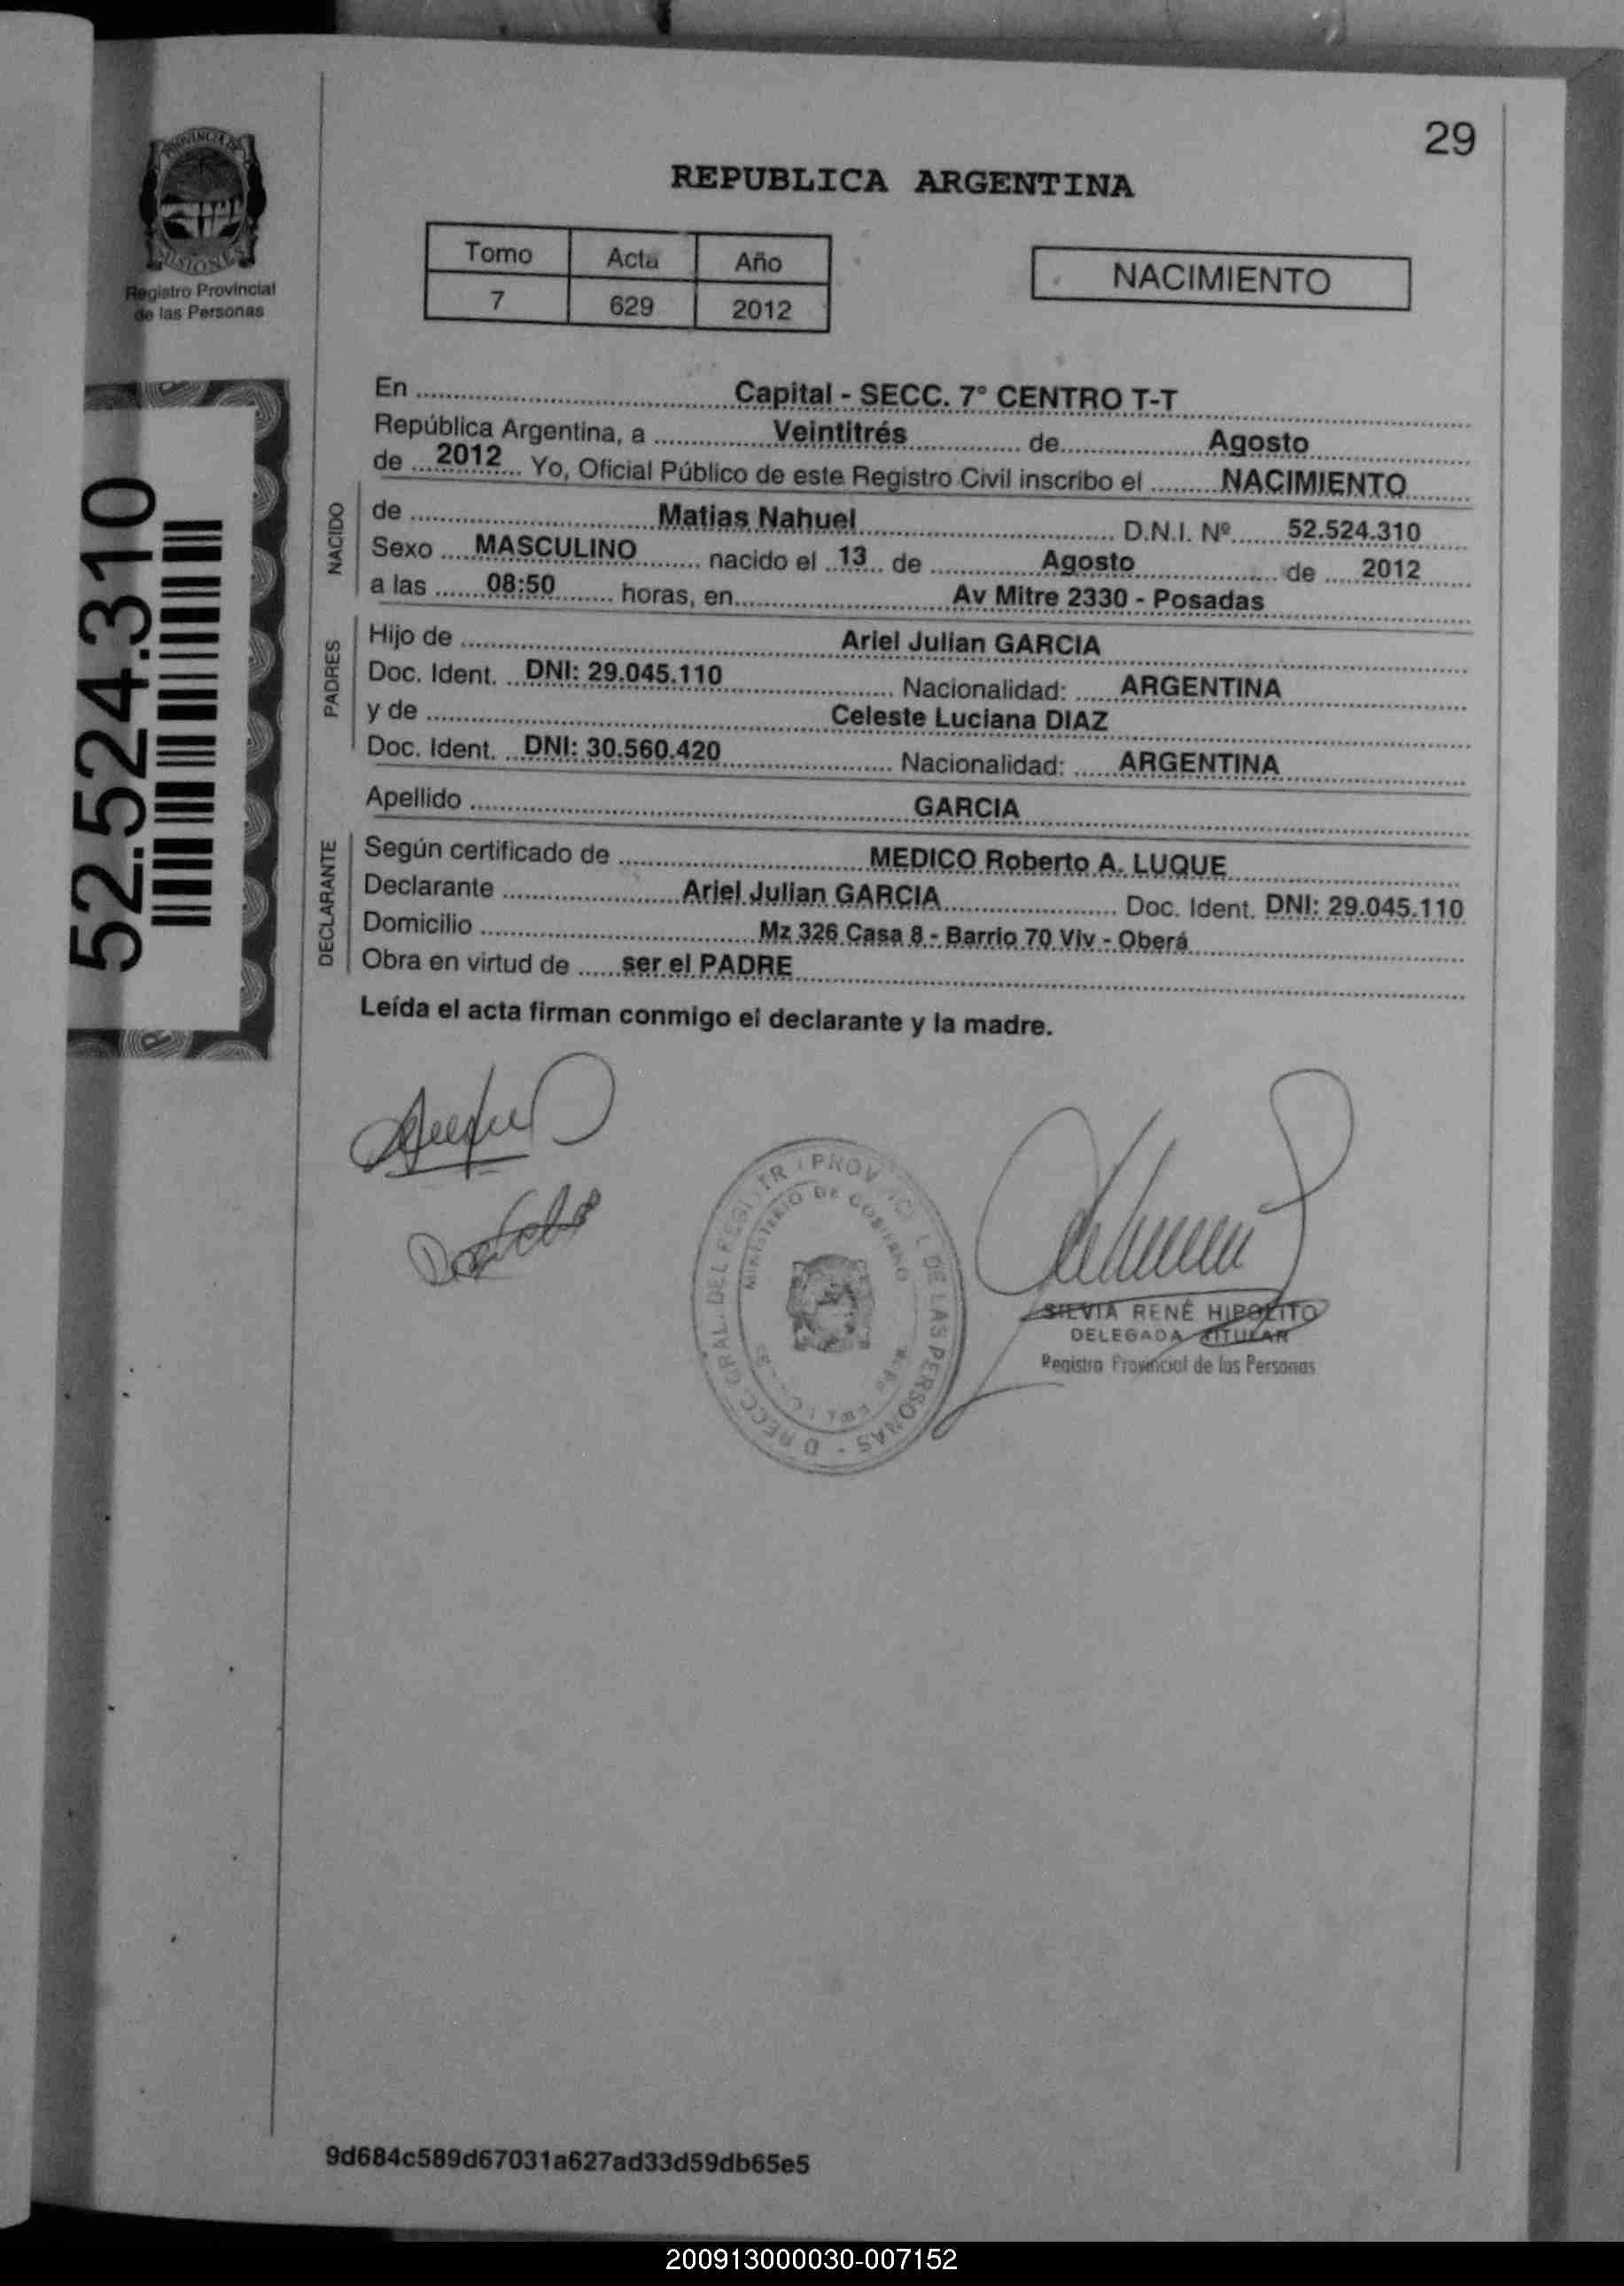 29
PROVINCIA DE
MISIONES
Registro Provincial
de las Personas
REPUBLICA ARGENTINA
Tomo Acta Año
7 629 2012
NACIMIENTO
52.524.310
En ........ Capital - SECC. 7° CENTRO T-T
República Argentina, a ........ Veintitrés ........ de ........ Agosto
de ... 2012 ... Yo, Oficial Público de este Registro Civil inscribo el ........ NACIMIENTO
NACIDO
de ........ Matias Nahuel ........ D.N.I. Nº ...... 52.524.310
Sexo .... MASCULINO ........ nacido el .. 13 .. de ........ Agosto ........ de ..... 2012
a las ...... 08:50 ....... horas, en ........ Av Mitre 2330 - Posadas
PADRES
Hijo de ........ Ariel Julian GARCIA
Doc. Ident. ... DNI: 29.045.110 ........ Nacionalidad: ..... ARGENTINA
y de ........ Celeste Luciana DIAZ
Doc. Ident. ... DNI: 30.560.420 ........ Nacionalidad: ..... ARGENTINA
Apellido ........ GARCIA
DECLARANTE
Según certificado de ........ MEDICO Roberto A. LUQUE
Declarante ........ Ariel Julian GARCIA ........ Doc. Ident. DNI: 29.045.110
Domicilio ........ Mz 326 Casa 8 - Barrio 70 Viv - Oberá
Obra en virtud de ...... ser el PADRE
Leída el acta firman conmigo el declarante y la madre.
GRAL. DEL DE LAS PERSONAS
MINISTERIO DE GOBIERNO
SILVIA RENÉ HIPOLITO
DELEGADA TITULAR
Registro Provincial de las Personas
9d684c589d67031a627ad33d59db65e5
200913000030-007152